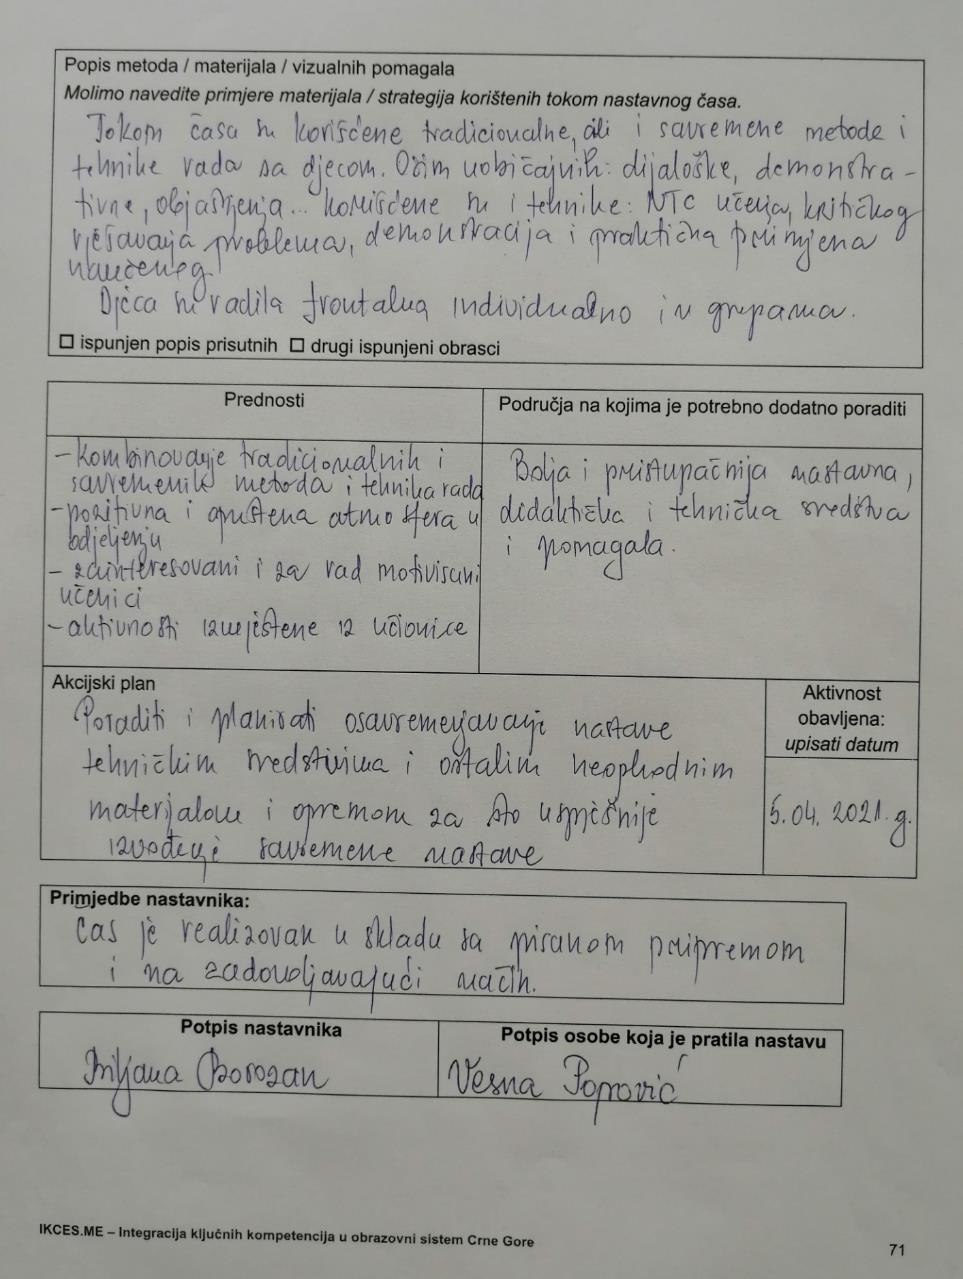 Popis metoda / materijala / vizualnih pomagala
Molimo navedite primjere materijala / strategija korištenih tokom nastavnog časa.
Tokom časa su korišćene tradicionalne, ali i savremene metode i
tehnike rada sa djecom. Osim uobičajnih: dijaloške, demonstra-
tivne, objašnjenja... korišćene su i tehnike: NTC učenja, kritičkog
rješavanja problema, demonstracija i praktična primjena
naučenog.
Djeca su radila frontalno, individualno i u grupama.
☐ ispunjen popis prisutnih ☐ drugi ispunjeni obrasci
Prednosti
- Kombinovanje tradicionalnih i
savremenih metoda i tehnika rada
- pozitivna i opuštena atmosfera u
odjeljenju
- zainteresovani i za rad motivisani
učenici
- aktivnosti izmještene iz učionice
Područja na kojima je potrebno dodatno poraditi
Bolja i pristupačnija nastavna,
didaktička i tehnička sredstva
i pomagala.
Akcijski plan
Poraditi i planirati osavremenjavanje nastave
tehničkim sredstvima i ostalim neophodnim
materijalom i opremom za što uspješnije
izvođenje savremene nastave
Aktivnost
obavljena:
upisati datum
5.04. 2021.g.
Primjedbe nastavnika:
Čas je realizovan u skladu sa pisanom pripremom
i na zadovoljavajući način.
Potpis nastavnika
Biljana Borozan
Potpis osobe koja je pratila nastavu
Vesna Popović
IKCES.ME – Integracija ključnih kompetencija u obrazovni sistem Crne Gore
71